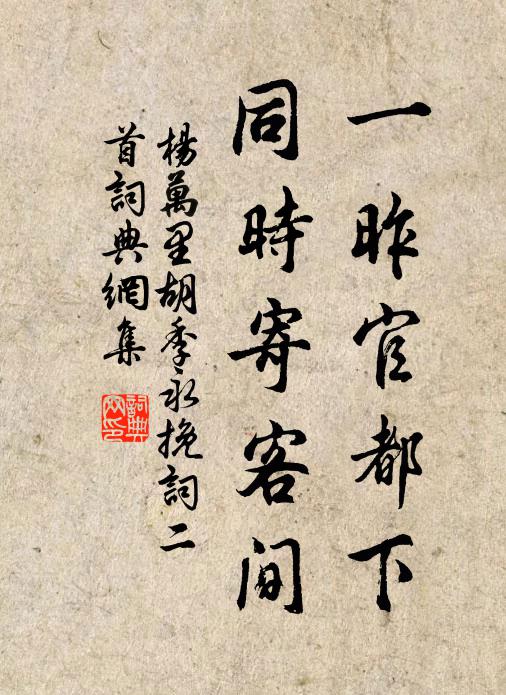 一昨官都下
同時寄客間
楊萬里胡季永挽詞二
首詞典網集
詞典網印